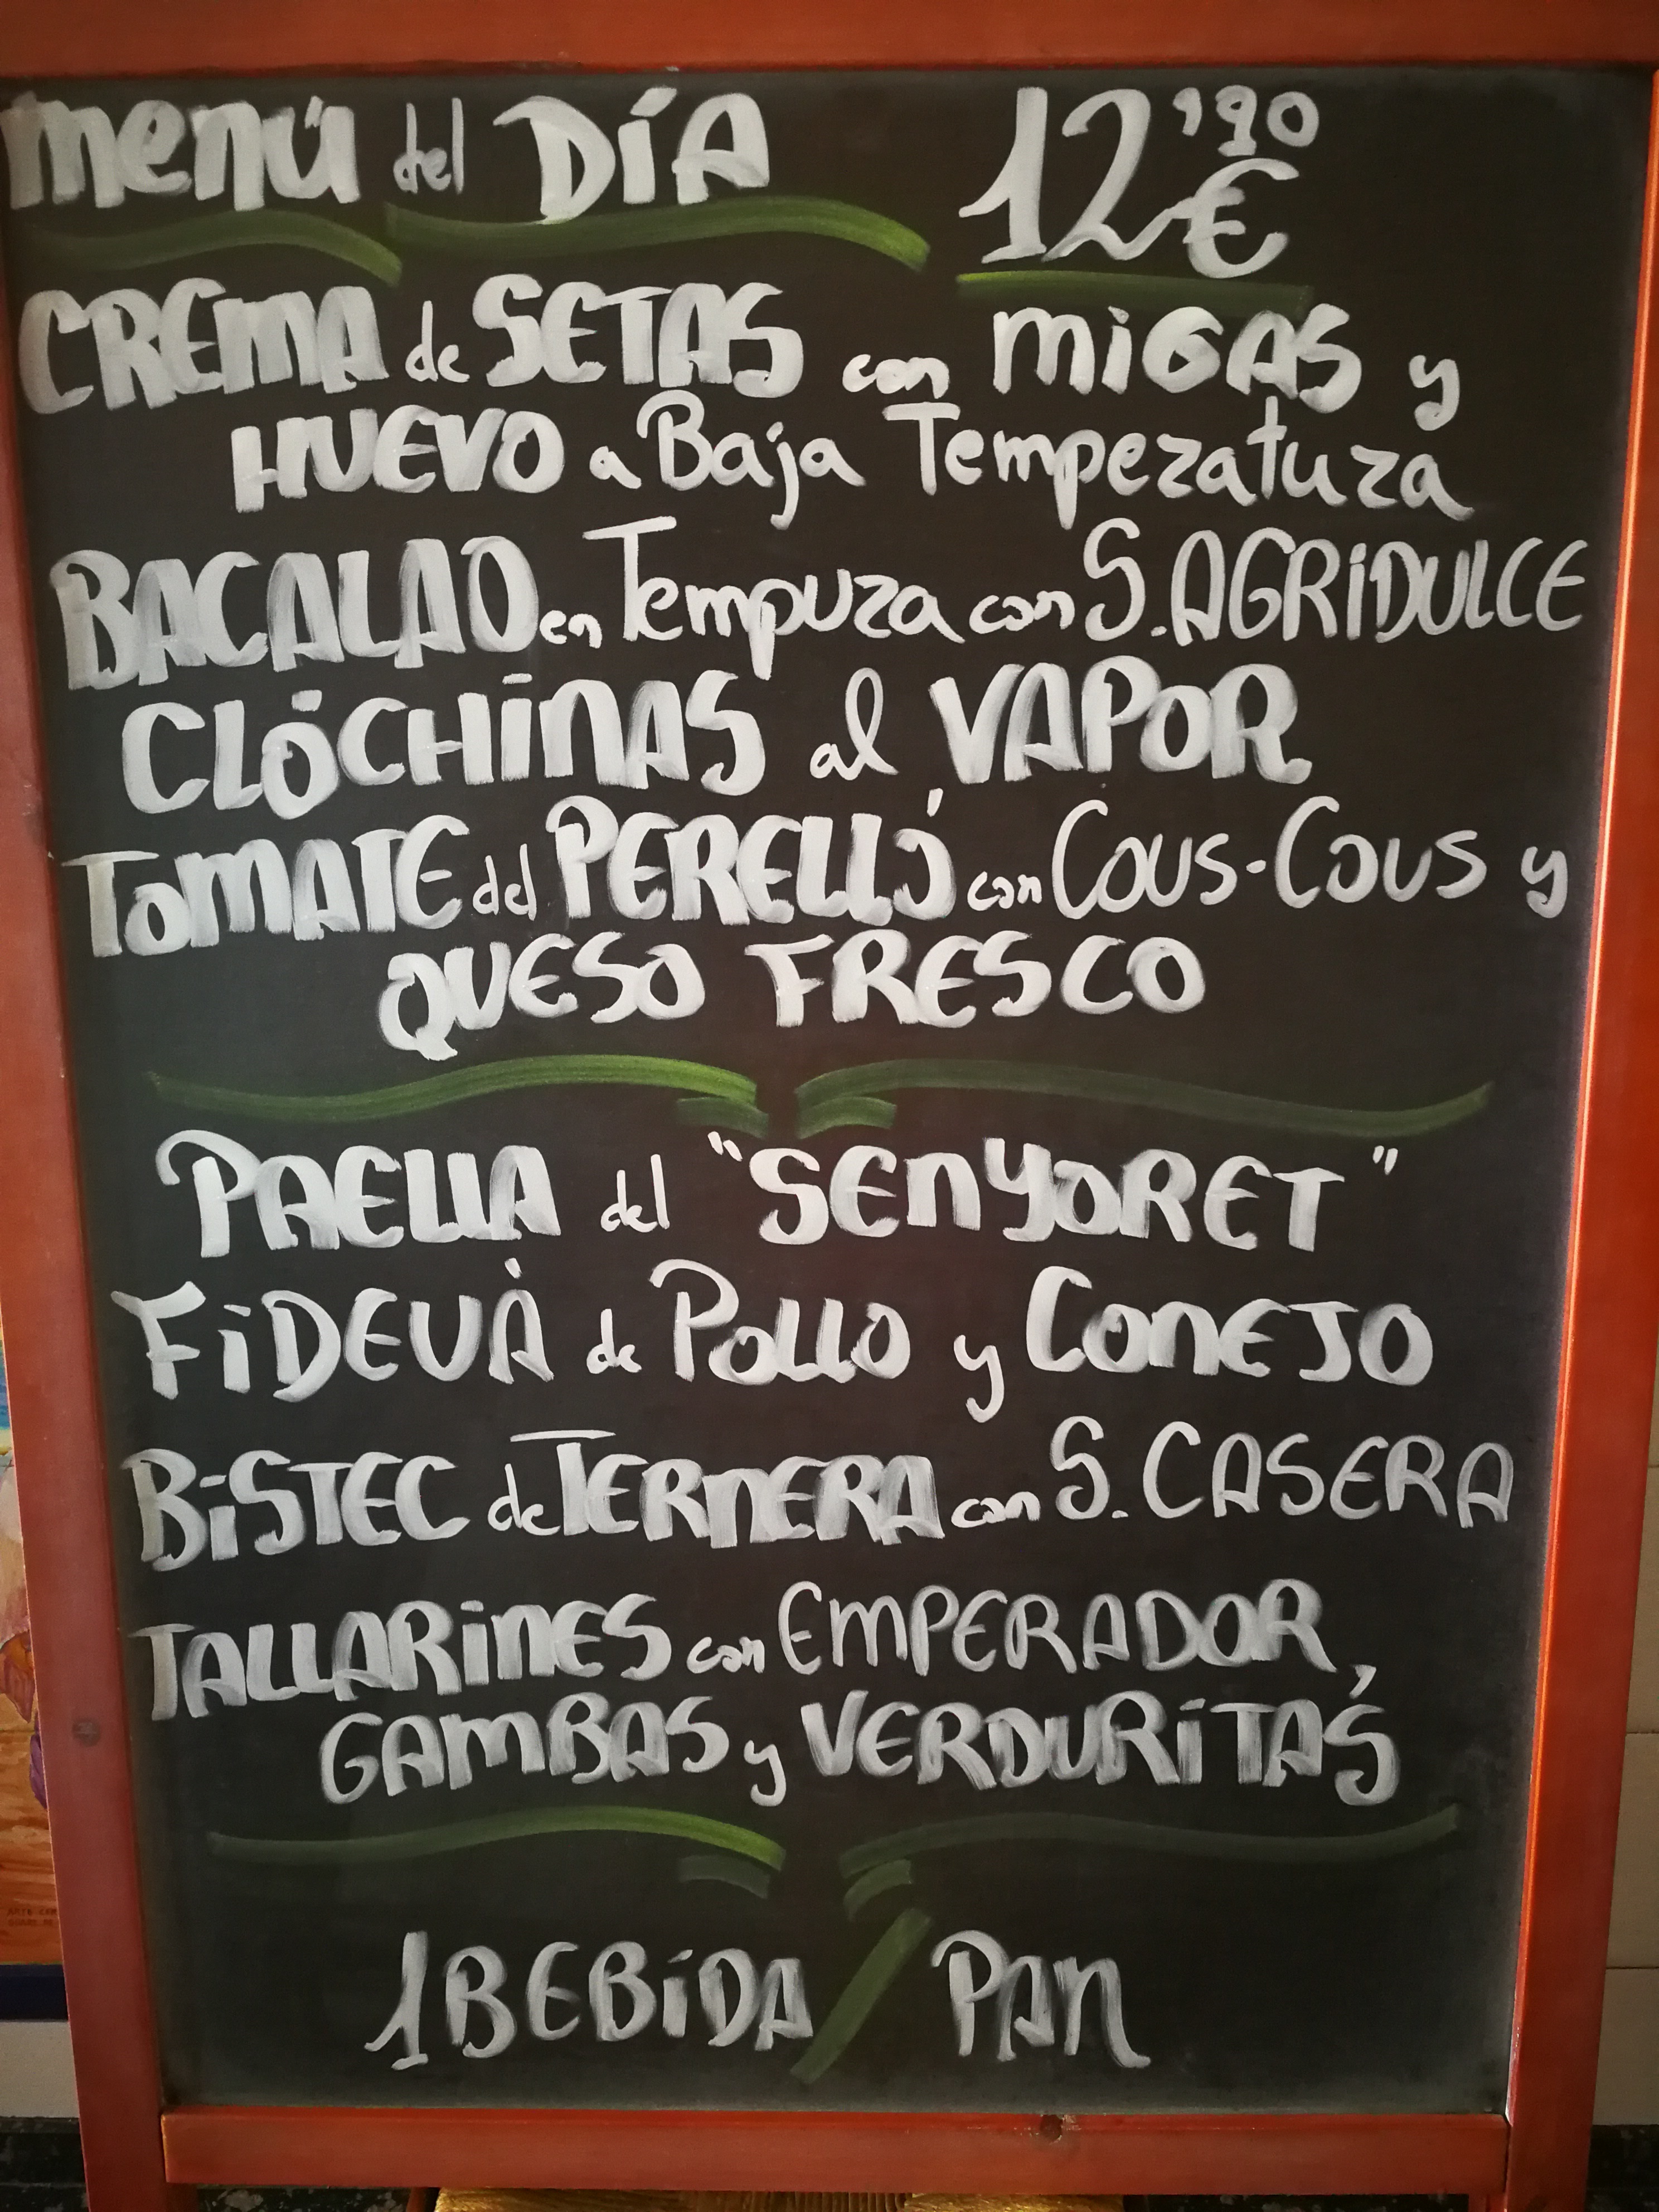 menú del DÍA 12'90 €
CREMA de SETAS con MiGAS y
HUEVO a Baja Temperatura
BACALAO en Tempura con S. AGRiDULCE
CLÓCHiNAS al VAPOR
TOMATE del PERELLÓ con Cous-Cous y
QUESO FRESCO
PAELLA del "SENYORET"
FiDEUÀ de POLLO y CONEJO
BiSTEC de TERNERA con S. CASERA
TALLARiNES con EMPERADOR,
GAMBAS y VERDURiTAS
1 BEBiDA / PAN